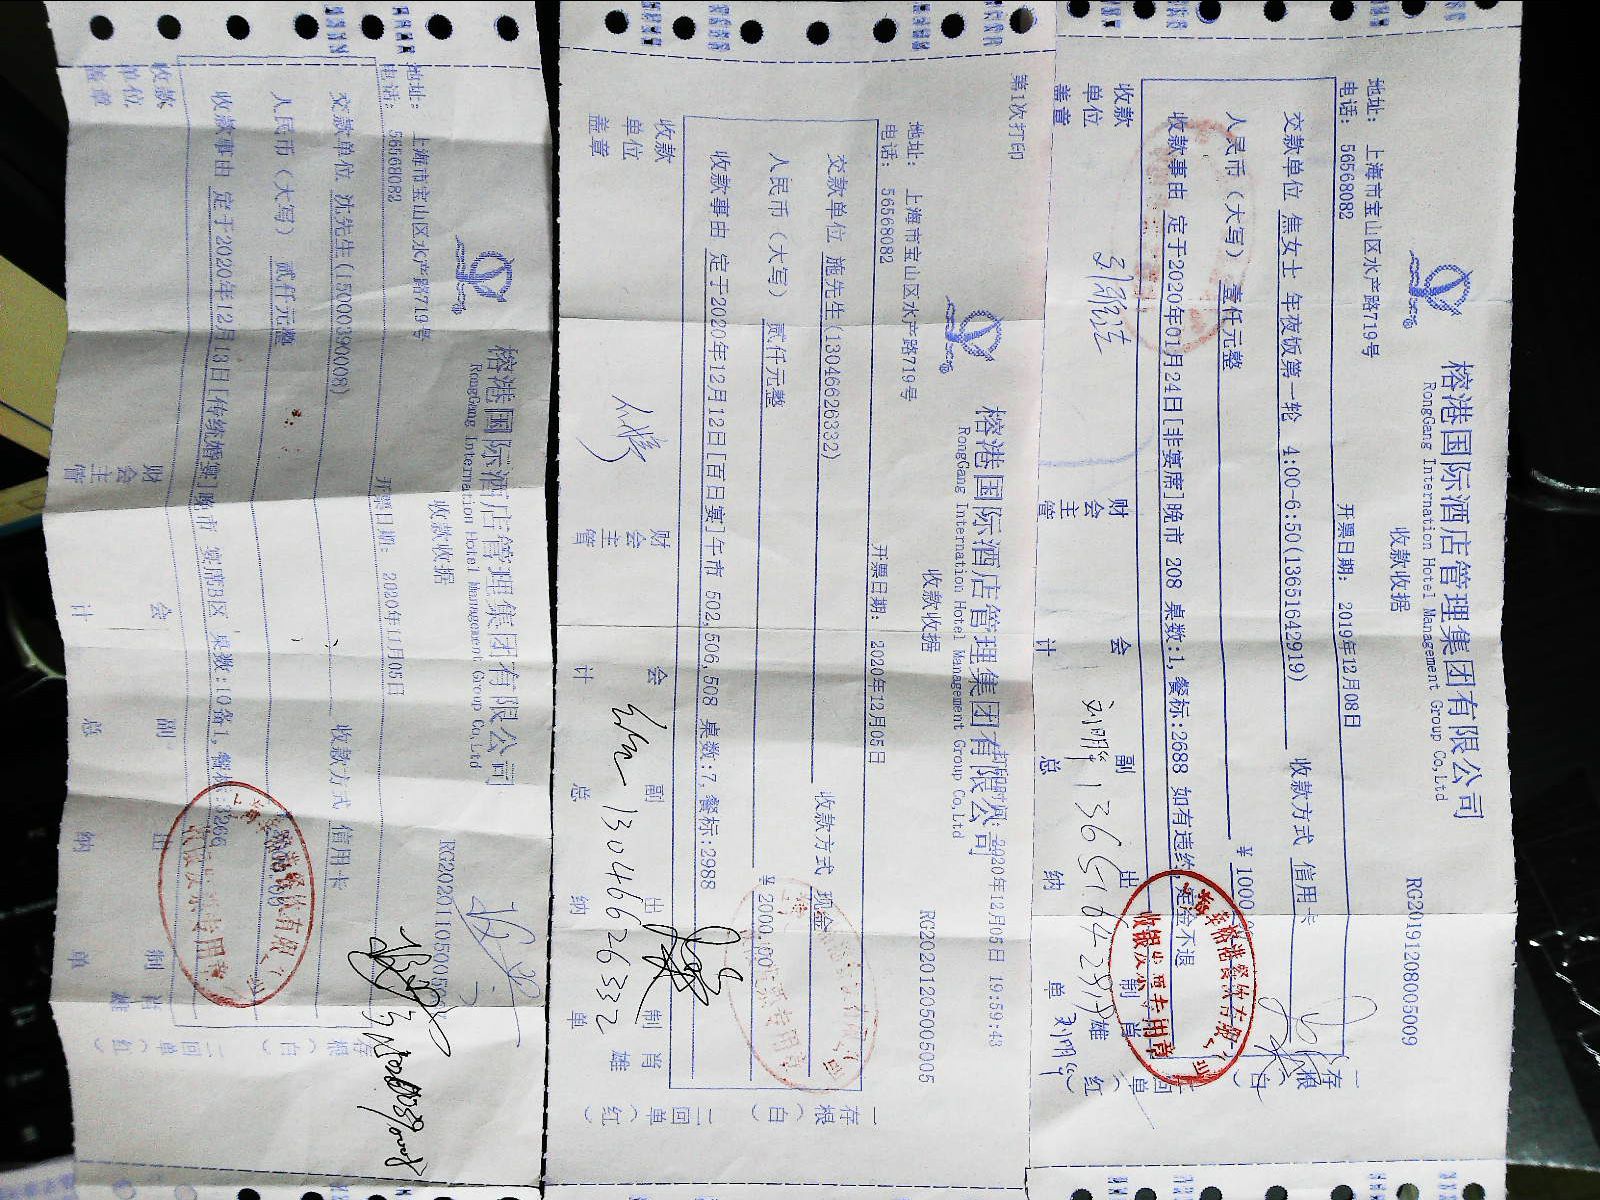 榕港国际酒店管理集团有限公司
RongGang Internation Hotel Management Group Co,Ltd
地址： 上海市宝山区水产路719号
收款收据
RG20191208005009
电话： 56568082
开票日期： 2019年12月08日
交款单位 焦女士 年夜饭第一轮 4:00-6:50(13651642919)
收款方式 信用卡
人民币（大写） 壹仟元整
收款事由 定于2020年01月24日[非宴席]晚市 208 桌数:1,餐标:2688 如有违约,定金不退
收款单位盖章
财会主管
会计
副总
出纳
制单
刘明华 13651642919
一存根（白）
二回单（红）
第1次打印
2020年12月05日 19:59:43
榕港国际酒店管理集团有限公司
RongGang Internation Hotel Management Group Co,Ltd
地址： 上海市宝山区水产路719号
收款收据
RG20201205005005
电话： 56568082
开票日期： 2020年12月05日
交款单位 施先生(13046626332)
收款方式 现金
人民币（大写） 贰仟元整
￥ 2000.00
收款事由 定于2020年12月12日[百日宴]午市 502,506,508 桌数:7,餐标:2988
收款单位盖章
财会主管
会计
副总
出纳
制单 肖雄
13046626332
一存根（白）
二回单（红）
榕港国际酒店管理集团有限公司
RongGang Internation Hotel Management Group Co,Ltd
地址： 上海市宝山区水产路719号
收款收据
电话： 56568082
开票日期： 2020年11月05日
交款单位 沈先生(15000390008)
收款方式 信用卡
人民币（大写） 贰仟元整
收款事由 定于2020年12月13日[传统婚宴]晚市
桌数:10备1,餐标:3266
收款单位盖章
财会主管
会计
副总
出纳
制单
存根（白）
二回单（红）